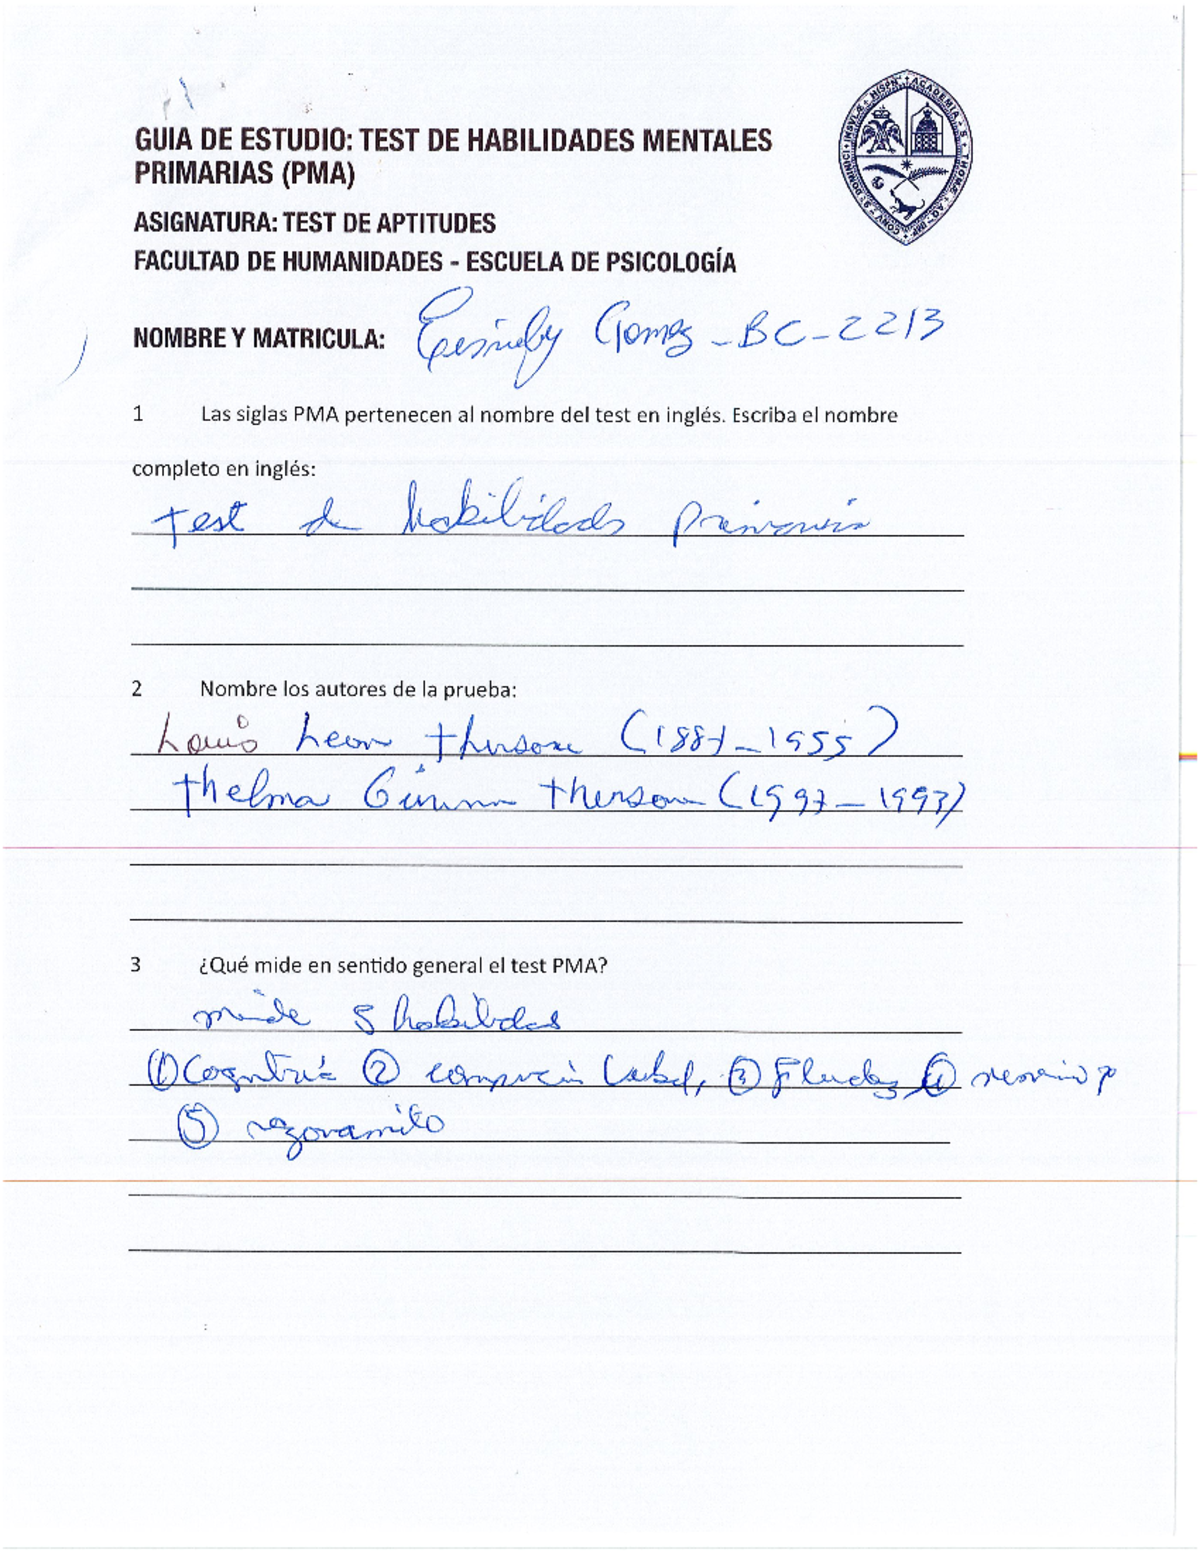 GUIA DE ESTUDIO: TEST DE HABILIDADES MENTALES
PRIMARIAS (PMA)
ASIGNATURA: TEST DE APTITUDES
FACULTAD DE HUMANIDADES - ESCUELA DE PSICOLOGÍA
NOMBRE Y MATRICULA: Gomez - BC-2213
1 Las siglas PMA pertenecen al nombre del test en inglés. Escriba el nombre
completo en inglés:
Test de habilidads
2 Nombre los autores de la prueba:
Louis Leon (1887-1955)
Thelma (1997-1993)
3 ¿Qué mide en sentido general el test PMA?
mide 5
① ② ③ ④
⑤